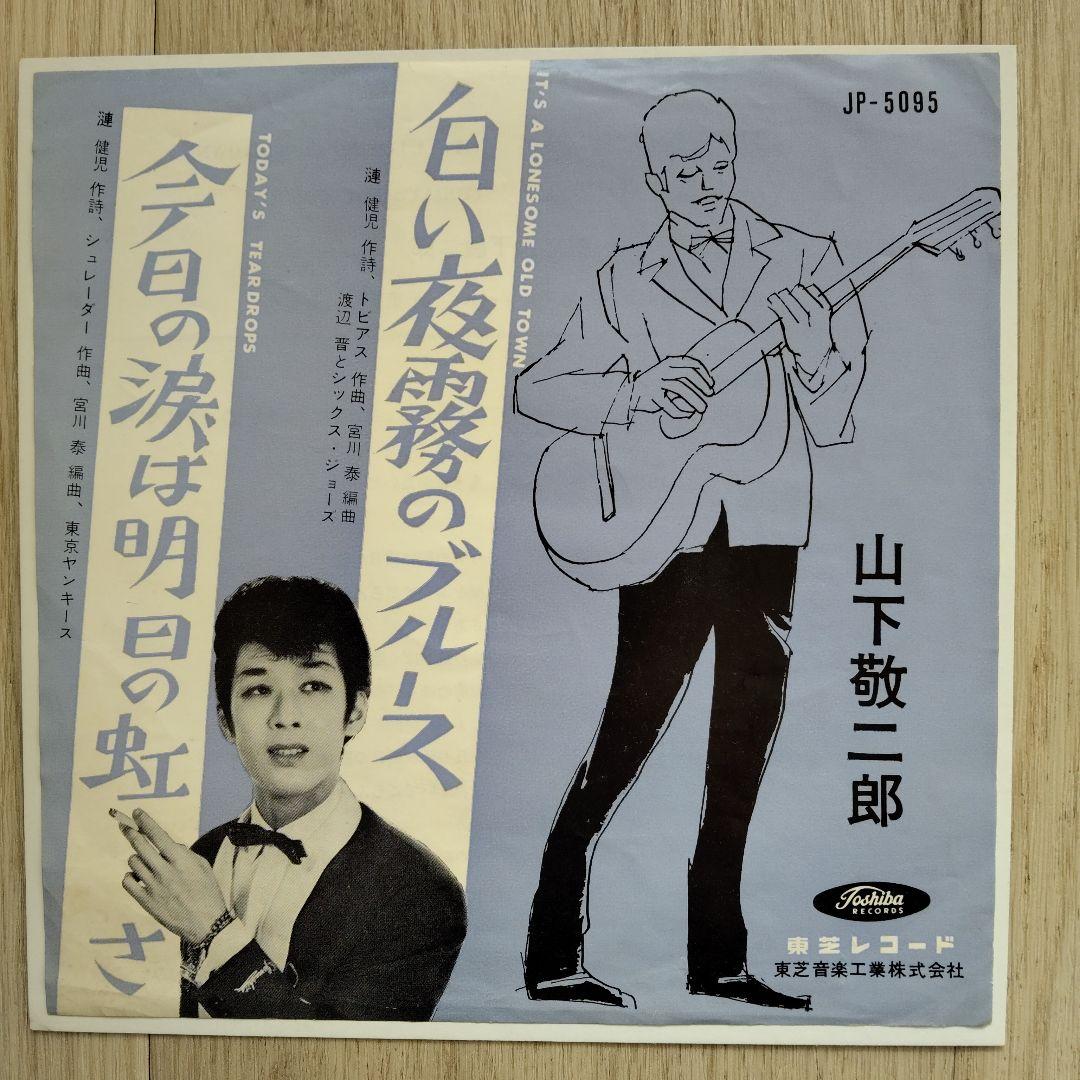 JP-5095
IT'S A LONESOME OLD TOWN
白い夜霧のブルース
漣 健児 作詩、トビアス 作曲、宮川 泰 編曲
渡辺 晋とシックス・ジョーズ
TODAY'S TEARDROPS
今日の涙は明日の虹さ
漣 健児 作詩、シュレーダー 作曲、宮川 泰 編曲、東京ヤンキース
山下敬二郎
Toshiba
RECORDS
東芝レコード
東芝音楽工業株式会社